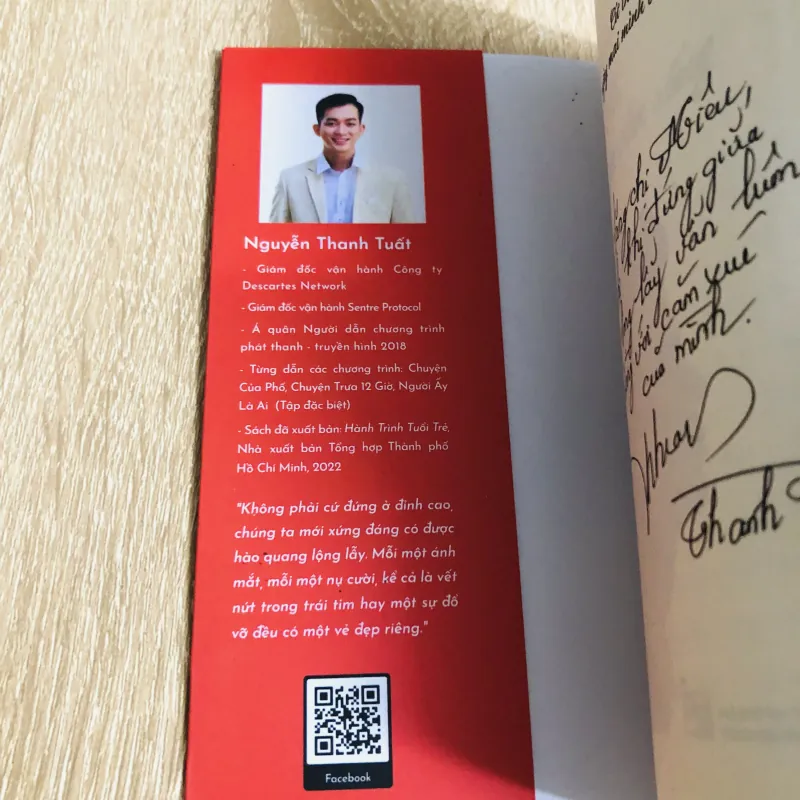 Nguyễn Thanh Tuất
- Giám đốc vận hành Công ty
Descartes Network
- Giám đốc vận hành Sentre Protocol
- Á quân Người dẫn chương trình
phát thanh - truyền hình 2018
- Từng dẫn các chương trình: Chuyện
Của Phố, Chuyện Trưa 12 Giờ, Người Ấy
Là Ai (Tập đặc biệt)
- Sách đã xuất bản: Hành Trình Tuổi Trẻ,
Nhà xuất bản Tổng hợp Thành phố
Hồ Chí Minh, 2022
"Không phải cứ đứng ở đỉnh cao,
chúng ta mới xứng đáng có được
hào quang lộng lẫy. Mỗi một ánh
mắt, mỗi một nụ cười, kể cả là vết
nứt trong trái tim hay một sự đổ
vỡ đều có một vẻ đẹp riêng."
Facebook
mai mình
chị
khi đứng giữa
lấy vẫn luôn
với cảm xúc
của mình.
Thanh